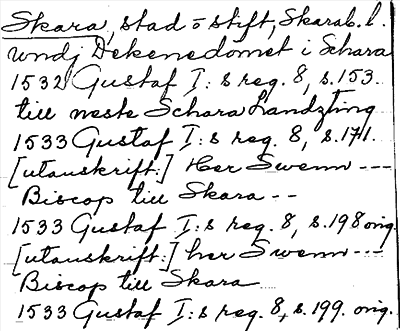 Skara, stad o stift, Skarab. l.
wndj Dekenedömet i Schara
1532 Gustaf I:s reg. 8, s. 153.
till neste Schara landzting
1533 Gustaf I:s reg. 8, s. 171.
[utanskrift:] Her Swenn ---
Biscop till Skara --
1533 Gustaf I:s reg. 8, s. 198 orig.
[utanskrift:] her Swenn ---
Biscop till Skara
1533 Gustaf I:s reg. 8, s. 199. orig.